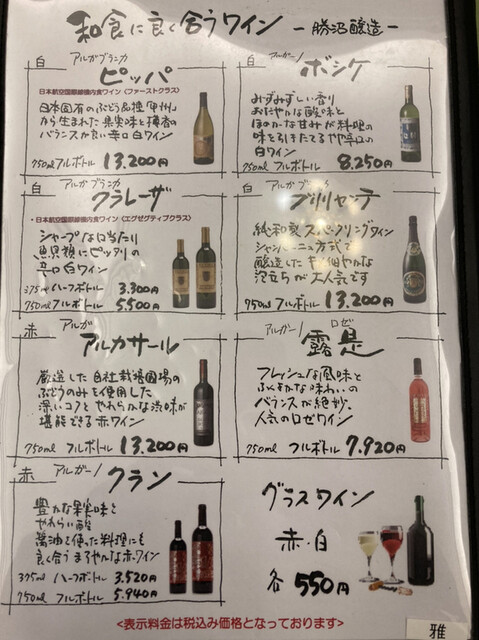 和食に良く合うワイン －勝沼醸造－
白 アルガブランカ
ピッパ
日本航空国際線機内食ワイン（ファーストクラス）
日本固有のぶどう品種「甲州」
から生まれた果実味と樽香の
バランスが良い辛口白ワイン
750ml フルボトル 13.200円
白 アルガーノ
ボシケ
みずみずしい香り
おだやかな酸味と
ほのかな甘みが料理の
味を引きたてるやや辛口の
白ワイン
750ml フルボトル 8.250円
白 アルガブランカ
クラレーザ
・日本航空国際線機内食ワイン（エグゼクティブクラス）
シャープな口当たり
魚貝類にピッタリの
辛口白ワイン
375ml ハーフボトル 3.300円
750ml フルボトル 5.500円
白 アルガブランカ
ブリリャンテ
純和製スパークリングワイン
シャンパーニュ方式で
醸造したキメ細やかな
泡立ちが大人気です
750ml フルボトル 13.200円
赤 アルガ
アルカサール
厳選した自社栽培圃場の
ぶどうのみを使用した
深いコクとやわらかな渋味が
堪能できる赤ワイン
750ml フルボトル 13.200円
アルガーノ ロゼ
露是
フレッシュな風味と
ふくよかな味わいの
バランスが絶妙、
人気のロゼワイン
750ml フルボトル 7.920円
赤 アルガーノ
クラン
豊かな果実味と
やわらかい酸
醤油を使った料理にも
良く合うまろやかな赤ワイン
375ml ハーフボトル 3.520円
750ml フルボトル 5.940円
グラスワイン
赤・白
各550円
<表示料金は税込み価格となっております>
雅